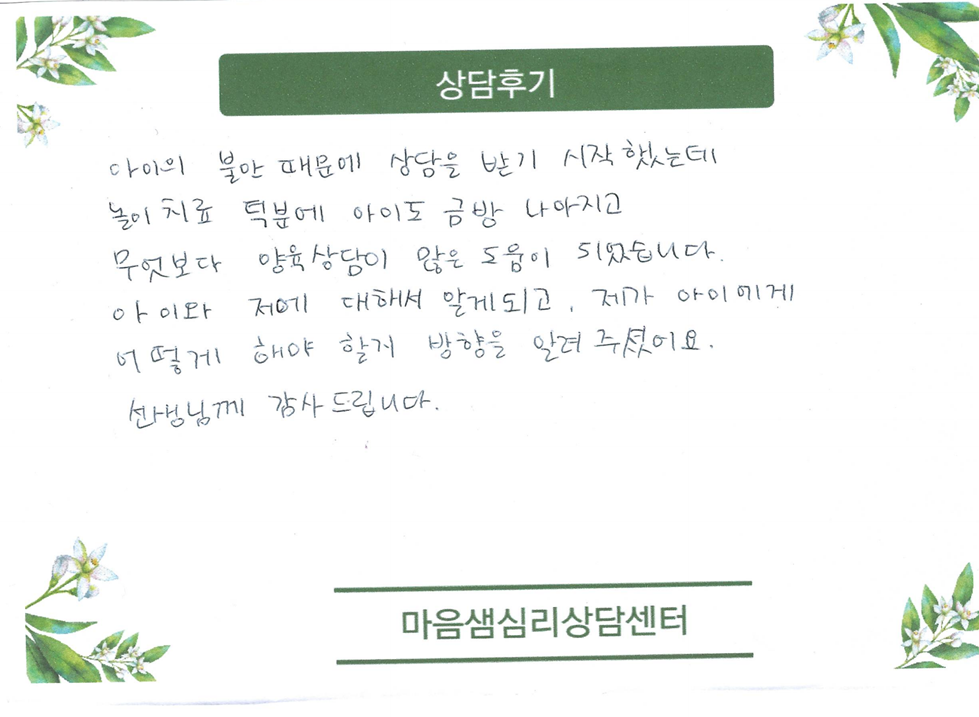 상담후기
아이의 불안 때문에 상담을 받기 시작했는데
놀이치료 덕분에 아이도 금방 나아지고
무엇보다 양육상담이 많은 도움이 되었습니다.
아이와 저에 대해서 알게되고, 제가 아이에게
어떻게 해야 할지 방향을 알려주셨어요.
선생님께 감사드립니다.
마음샘심리상담센터